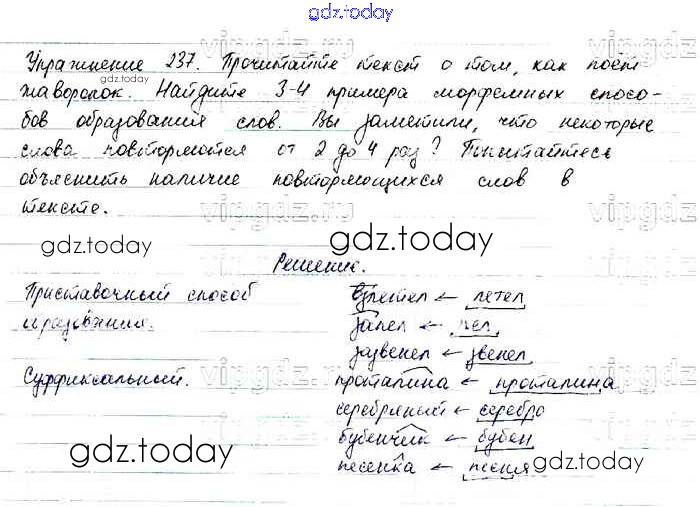 gdz.today
Упражнение 237. Прочитайте текст о том, как поёт
gdz.today
жаворонок. Найдите 3-4 примера морфемных спосо-
бов образования слов. Вы заметили, что некоторые
слова повторяются от 2 до 4 раз? Попытайтесь
объяснить наличие повторяющихся слов в
тексте.
vipgdz.ru
gdz.today gdz.today
Решение.
Приставочный способ взлетел ← летел
образования. запел ← пел
зазвенел ← звенел
Суффиксальный. проталина ← проталина
серебряный ← серебро
бубенчик ← бубен
gdz.today
песенка ← песня gdz.today